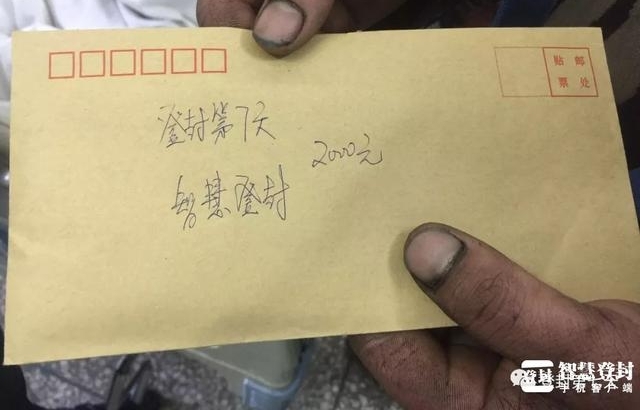 贴 邮
票 处
登封第7天
2000元
智慧登封
智慧登封
手机客户端